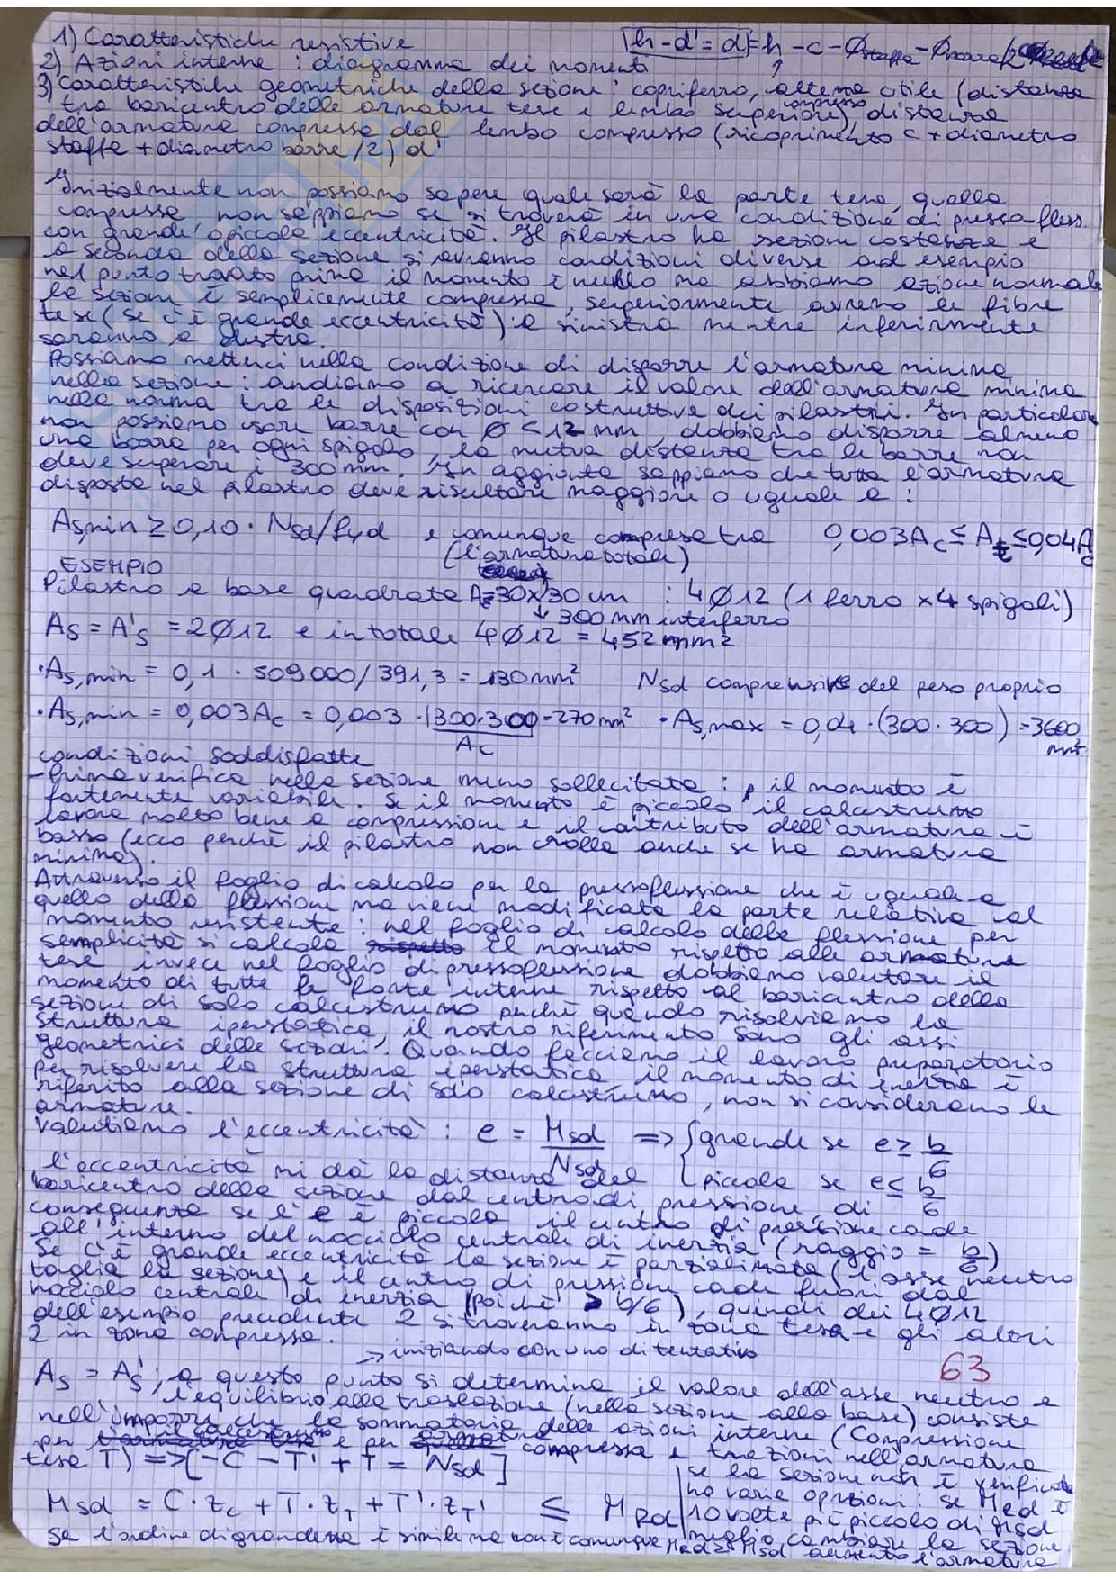 1) Caratteristiche resistive |h-d'=d|=h-c-Østaffe-Øbarre/2
2) Azioni interne : diagramma dei momenti
3) Caratteristiche geometriche della sezione: copriferro, altezza utile (distanza
tra baricentro delle armature tese e lembo compresso superiore), distanza
dell'armatura compressa dal lembo compresso (ricoprimento c+diametro
staffe + diametro barre/2) d'
Inizialmente non possiamo sapere quale sarà la parte tesa, quella
compressa, non sappiamo se si troverà in una condizione di presso-fless.
con grande o piccola eccentricità. Il pilastro ha sezioni costante e
a seconda della sezione si avranno condizioni diverse ad esempio
nel punto trovato prima il momento è nullo ma abbiamo azione normale
la sezione è semplicemente compressa, superiormente avremo le fibre
tese (se c'è grande eccentricità) a sinistra mentre inferiormente
saranno a destra.
Possiamo metterci nella condizione di disporre l'armatura minima
nella sezione: andiamo a ricercare il valore dell'armatura minima
nella norma tra le disposizioni costruttive dei pilastri. In particolare
non possiamo usare barre con Ø < 12 mm, dobbiamo disporre almeno
una barra per ogni spigolo, la mutua distanza tra le barre non
deve superare i 300 mm. In aggiunta sappiamo che tutta l'armatura
disposta nel pilastro deve risultare maggiore o uguale a :
As,min ≥ 0,10 · Nsd/fyd e comunque compresa tra 0,003Ac ≤ At ≤ 0,04Ac
(l'armatura totale)
ESEMPIO
Pilastro a base quadrata Ac=30x30 cm : 4Ø12 (1 ferro x 4 spigoli)
↓ 300 mm interferro
As = A's = 2Ø12 e in totale 4Ø12 = 452 mm²
·As,min = 0,1 · 509000/391,3 = 130mm² Nsd comprensivo del peso proprio
·As,min = 0,003Ac = 0,003 · (300·300) = 270 mm² ·As,max = 0,04 · (300·300) = 3600 mm²
Ac
condizioni soddisfatte
- Prima verifica nella sezione meno sollecitata: il momento è
fortemente variabile. Se il momento è piccolo, il calcestruzzo
lavora molto bene a compressione e il contributo dell'armatura è
basso (ecco perché il pilastro non crolla anche se ha armatura
minima).
Attraverso il foglio di calcolo per la pressoflessione che è uguale a
quello della flessione ma viene modificata la parte relativa al
momento resistente: nel foglio di calcolo della flessione per
semplicità si calcola il momento rispetto alle armature
tese invece nel foglio di pressoflessione dobbiamo valutare il
momento di tutte le forze interne rispetto al baricentro della
sezione di solo calcestruzzo perché quando risolviamo la
struttura iperstatica, il nostro riferimento sono gli assi
geometrici delle sezioni. Quando facciamo il lavoro preparatorio
per risolvere la struttura iperstatica il momento di inerzia è
riferito alla sezione di solo calcestruzzo, non si considerano le
armature.
Valutiamo l'eccentricità : e = Msd/Nsd => { grande se e ≥ b/6
piccola se e ≤ b/6
l'eccentricità mi dà la distanza del
baricentro della sezione dal centro di pressione di
conseguenza se l'e è piccola il centro di pressione cade
all'interno del nocciolo centrale di inerzia (raggio = b/6)
Se c'è grande eccentricità la sezione è parzializzata (l'asse neutro
taglia la sezione) e il centro di pressione cade fuori dal
nocciolo centrale di inerzia (poiché > b/6), quindi dei 4Ø12
dell'esempio precedente 2 si troveranno in zona tesa e gli altri
2 in zona compressa.
→ iniziando con uno di tentativo
63
As = A's, a questo punto si determina il valore dell'asse neutro e
l'equilibrio alla traslazione (nella sezione alla base) consiste
nell'imporre che la sommatoria delle azioni interne (Compressione
per il calcestruzzo e per armatura compressa e trazioni nell'armatura
tesa T) => [-C - T' + T = Nsd]
Msd = C·zc + T·zT + T'·zT' ≤ MRd
se la sezione non è verificata
ho varie opzioni: se Mrd è
10 volte più piccolo di Msd
meglio cambiare la sezione
se l'ordine di grandezza è simile ma non è comunque Mrd≥Msd aumento l'armatura